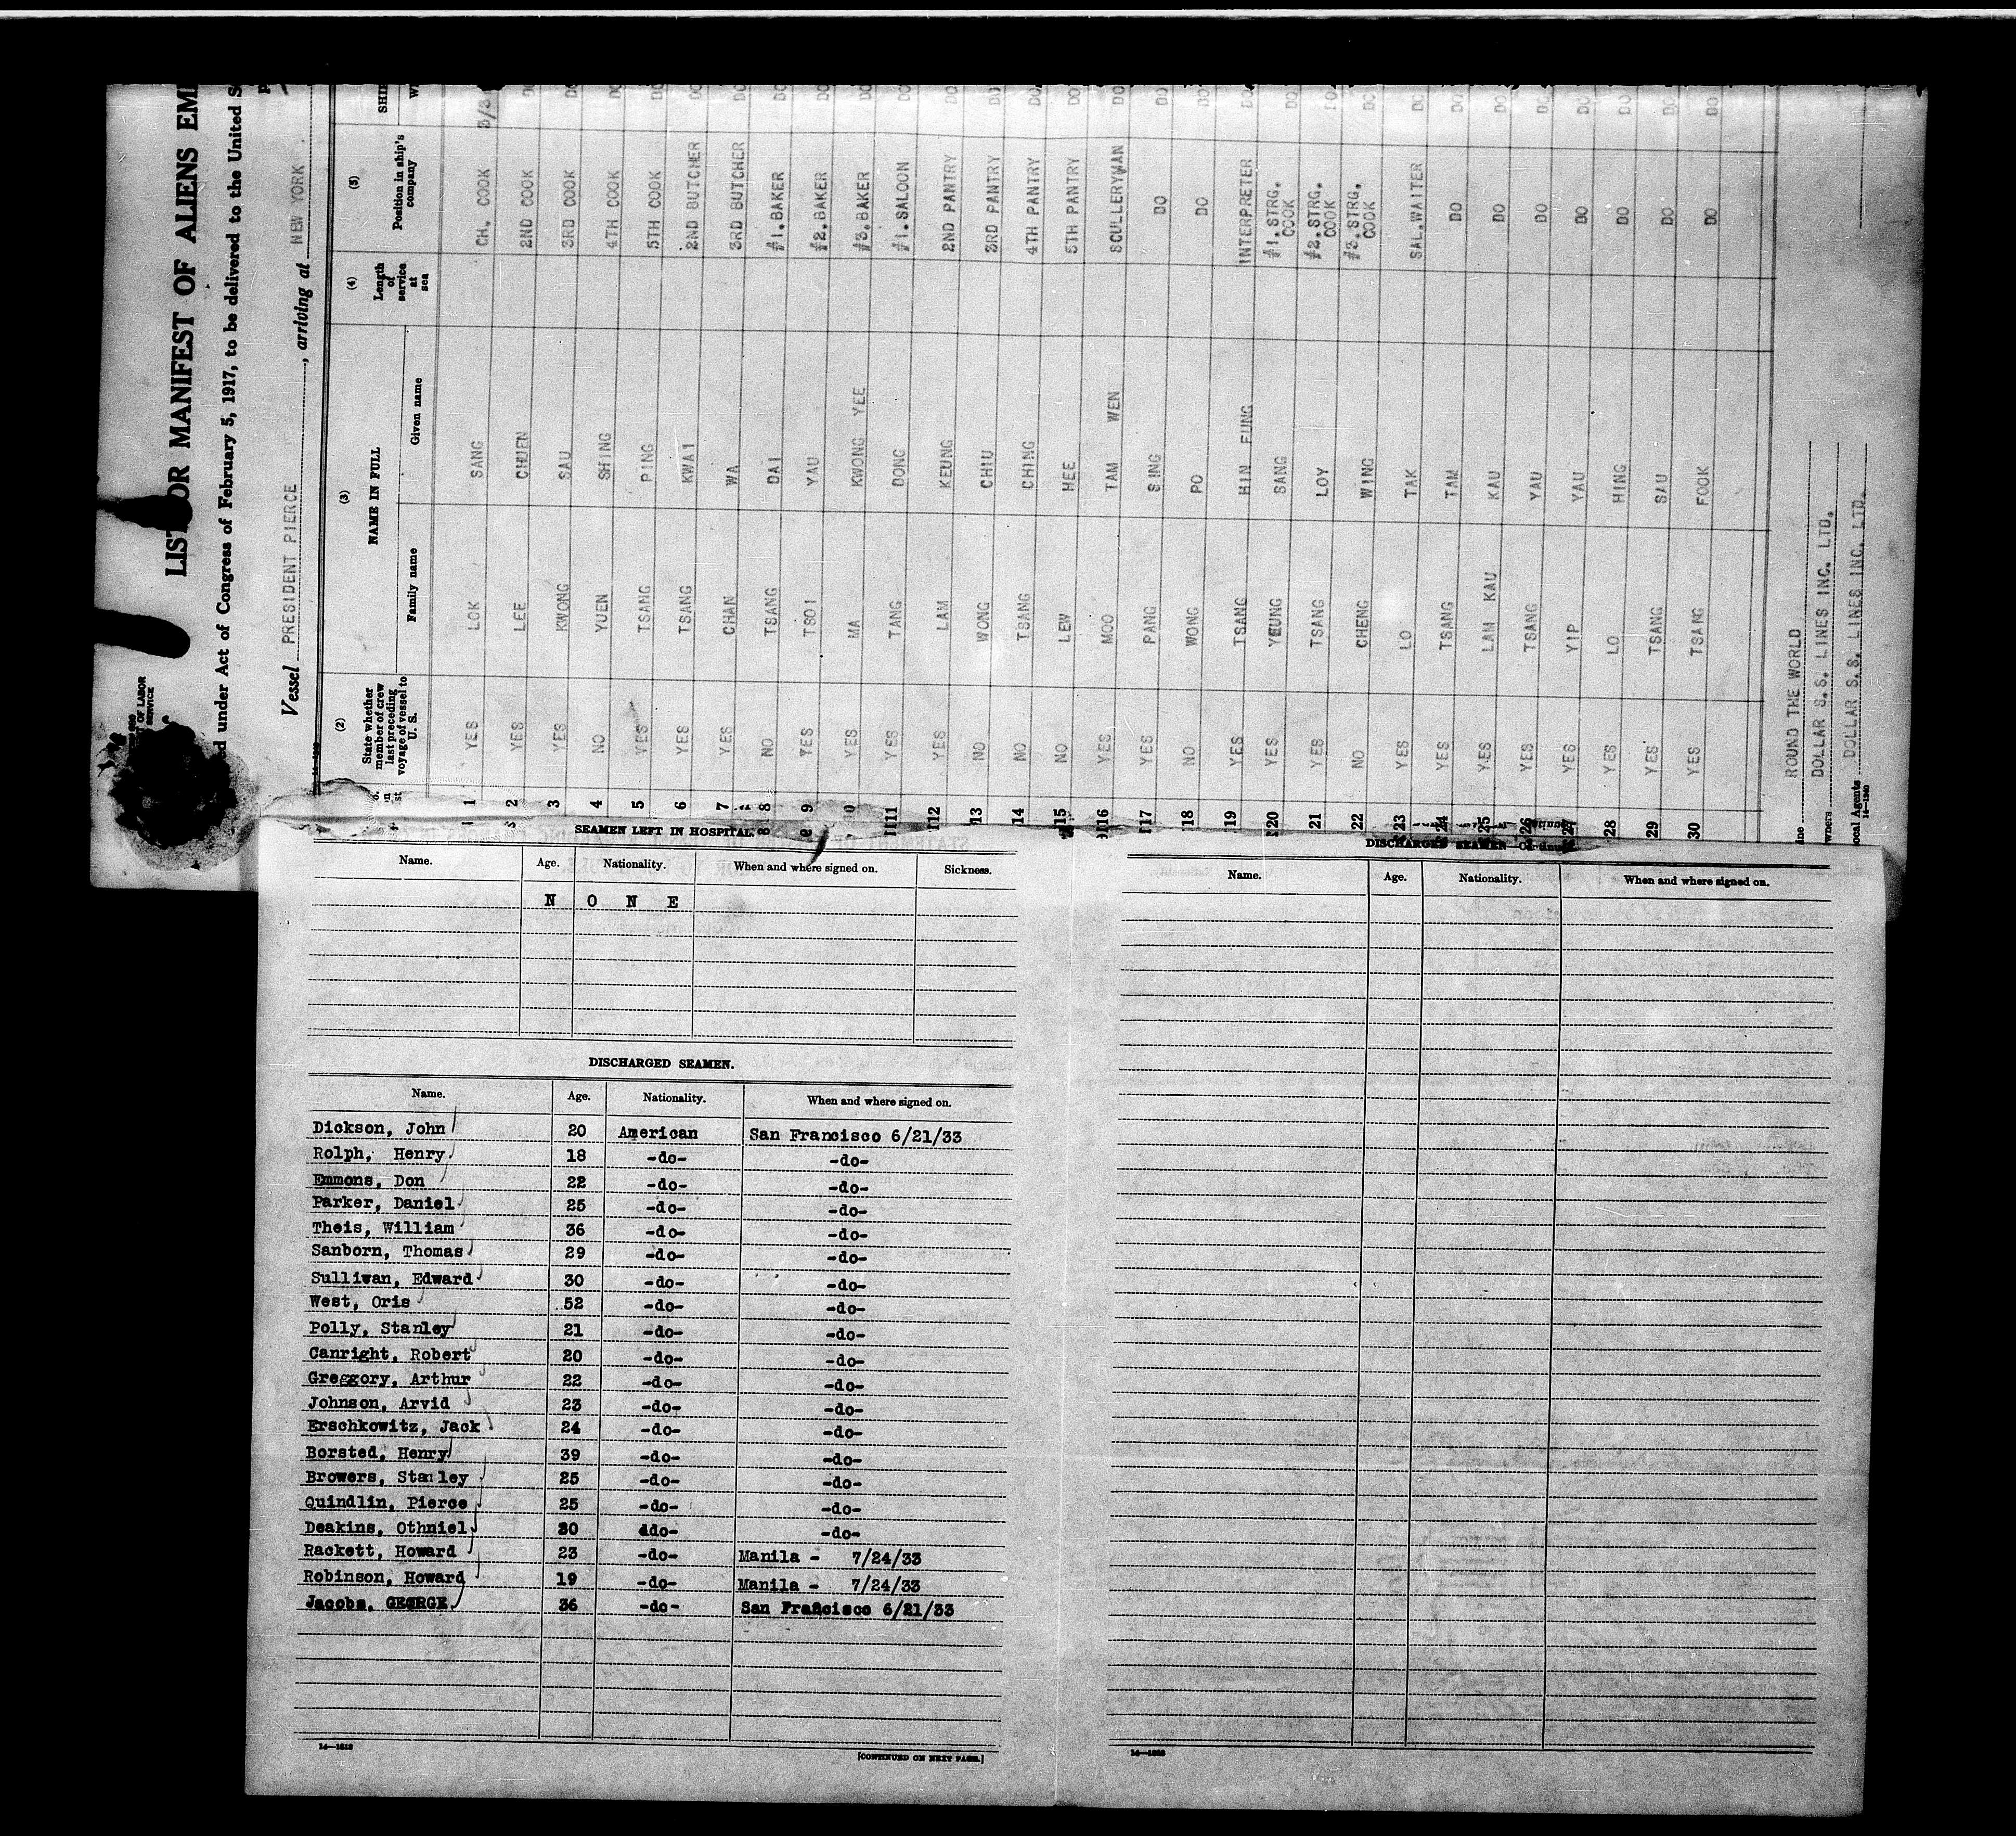 LIST OR MANIFEST OF ALIENS EM
under Act of Congress of February 5, 1917, to be delivered to the United S
Vessel PRESIDENT PIERCE, arriving at NEW YORK
(2) (3) (4) (5)
State whether member of crew last preceding voyage of vessel to U. S.
NAME IN FULL
Family name Given name
Length of service at sea
Position in ship's company
1 YES LOK SANG CH. COOK 3/3
2 YES LEE CHUEN 2ND COOK DO
3 YES KWONG SAU 3RD COOK DO
4 NO YUEN SHING 4TH COOK DO
5 YES TSANG PING 5TH COOK DO
6 YES TSANG KWAI 2ND BUTCHER DO
7 YES CHAN WA 3RD BUTCHER DO
8 NO TSANG DAI #1.BAKER DO
9 YES TSOI YAU #2.BAKER DO
10 YES MA KWONG YEE #3.BAKER DO
11 YES TANG DONG #1.SALOON DO
12 YES LAM KEUNG 2ND PANTRY DO
13 NO WONG CHIU 3RD PANTRY DO
14 NO TSANG CHING 4TH PANTRY DO
15 NO LEW HEE 5TH PANTRY DO
16 YES MOO TAM WEN SCULLERYMAN DO
17 YES PANG SING DO DO
18 NO WONG PO DO DO
19 YES TSANG HIN FUNG INTERPRETER DO
20 YES YEUNG SANG #1.STRG. COOK DO
21 YES TSANG LOY #2.STRG. COOK DO
22 NO CHENG WING #3.STRG. COOK DO
23 YES LO TAK SAL.WAITER DO
24 YES TSANG TAM DO DO
25 YES LAM KAU KAU DO DO
26 YES TSANG YAU DO DO
27 YES YIP YAU DO DO
28 YES LO HING DO DO
29 YES TSANG SAU DO DO
30 YES TSANG FOOK DO DO
ROUND THE WORLD
DOLLAR S.S. LINES INC. LTD.
ocal Agents DOLLAR S.S. LINES INC. LTD.
14—1240
SEAMEN LEFT IN HOSPITAL.
Name. Age. Nationality. When and where signed on. Sickness.
N O N E
DISCHARGED SEAMEN.
Name. Age. Nationality. When and where signed on.
Dickson, John 20 American San Francisco 6/21/33
Rolph, Henry 18 -do- -do-
Emmons, Don 22 -do- -do-
Parker, Daniel 25 -do- -do-
Theis, William 36 -do- -do-
Sanborn, Thomas 29 -do- -do-
Sullivan, Edward 30 -do- -do-
West, Oris 52 -do- -do-
Polly, Stanley 21 -do- -do-
Canright, Robert 20 -do- -do-
Greggory, Arthur 22 -do- -do-
Johnson, Arvid 23 -do- -do-
Erschkowitz, Jack 24 -do- -do-
Borsted, Henry 39 -do- -do-
Browers, Stanley 25 -do- -do-
Quindlin, Pierce 25 -do- -do-
Deakins, Othniel 30 ddo- -do-
Rackett, Howard 23 -do- Manila - 7/24/33
Robinson, Howard 19 -do- Manila - 7/24/33
Jacobs, GEORGE 36 -do- San Francisco 6/21/33
14—1213
[CONTINUED ON NEXT PAGE.]
DISCHARGED SEAMEN
Name. Age. Nationality. When and where signed on.
14—1213